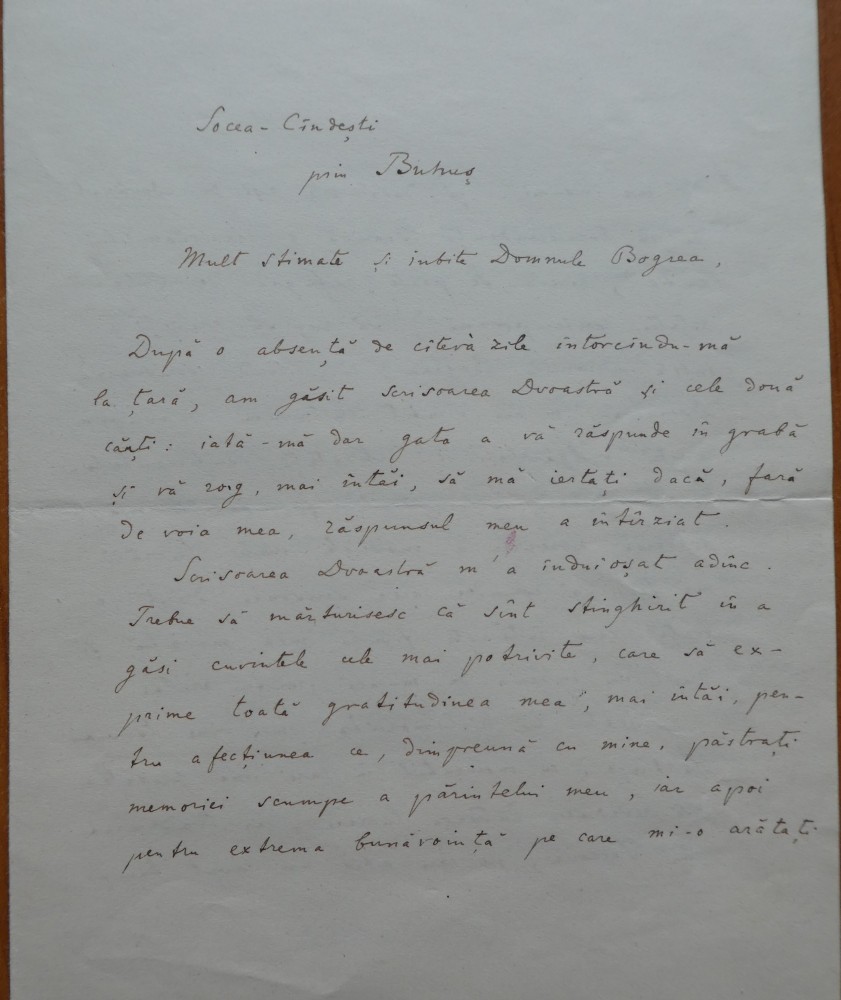 Socea - Cîndești
prin Buhuș
Mult stimate și iubite Domnule Bogrea,
După o absență de cîteva zile întorcîndu-mă
la țară, am găsit scrisoarea Dvoastră și cele două
cărți: iată-mă dar gata a vă răspunde în grabă
și vă rog, mai întăi, să mă iertați dacă, fară
de voia mea, răspunsul meu a întîrziat.
Scrisoarea Dvoastră m'a induioșat adînc.
Trebue să mărturisesc că sînt stinghirit în a
găsi cuvintele cele mai potrivite, care să ex-
prime toată gratitudinea mea, mai întăi, pen-
tru afecțiunea ce, dimpreună cu mine, păstrați
memoriei scumpe a părintelui meu, iar apoi
pentru extrema bunăvoință pe care mi-o arătați